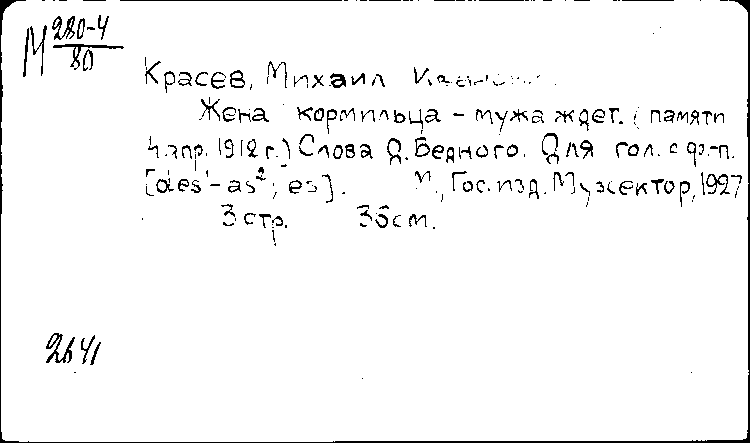 М 280-4
80
Красев, Михаил
Жена кормильца - мужа ждет. (памяти
4 апр. 1912 г.) Слова Д. Бедного. Для гол. с ф.-п.
[des¹-as²; es]. М., Гос. изд. Музсектор, 1927
3 стр. 35 см.
2641